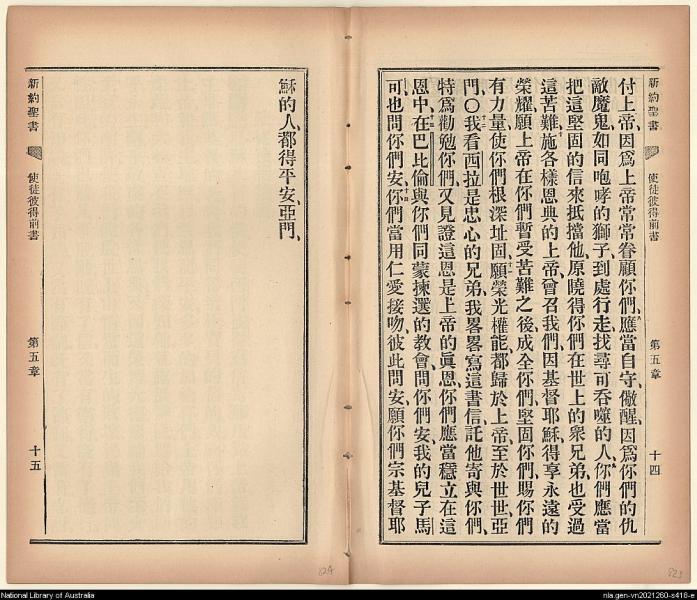 新約聖書
使徒彼得前書
第五章
十四
付上帝、因爲上帝常常眷顧你們、八應當自守、儆醒、因爲你們的仇
敵魔鬼、如同咆哮的獅子、到處行走、找尋可吞噬的人、你們應當
把這堅固的信來抵擋他、原曉得你們在世上的衆兄弟、也受過
這苦難、施各樣恩典的上帝、曾召我們、因基督耶穌得享永遠的
榮耀、願上帝在你們暫受苦難之後、成全你們、堅固你們、賜你們
有力量、使你們根深址固、十一願榮光權能、都歸於上帝、至於世世、亞
門、〇十二我看西拉是忠心的兄弟、我畧畧寫這書信、託他寄與你們、
特爲勸勉你們、又見證這恩是上帝的眞恩、你們應當穩立在這
恩中、十三在巴比倫與你們同蒙揀選的教會、問你們安、我的兒子馬
可也問你們安、十四你們當用仁愛接吻、彼此問安、願你們宗基督耶
穌的人、都得平安、亞門、
新約聖書
使徒彼得前書
第五章
十五
824
823
National Library of Australia
nla.gen-vn2021260-s416-e